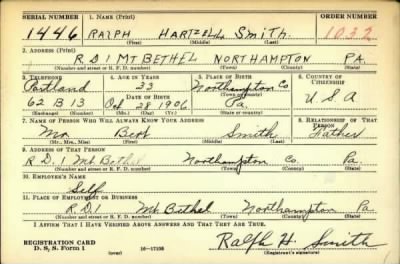 SERIAL NUMBER 1. NAME (Print) ORDER NUMBER
1446 RALPH HARTZELL SMITH. 1032
(First) (Middle) (Last)
2. ADDRESS (Print)
R.D.1 MT BETHEL NORTHAMPTON PA.
(Number and street or R. F. D. number) (Town) (County) (State)
3. TELEPHONE 4. AGE IN YEARS 5. PLACE OF BIRTH 6. COUNTRY OF CITIZENSHIP
Portland 33 Northampton Co
DATE OF BIRTH (Town or county)
62 R 13 Oct 28 1906 Pa. U.S.A
(Exchange) (Number) (Mo.) (Day) (Yr.) (State or country)
7. NAME OF PERSON WHO WILL ALWAYS KNOW YOUR ADDRESS 8. RELATIONSHIP OF THAT PERSON
Mr. Bert Smith Father
(Mr., Mrs., Miss) (First) (Middle) (Last)
9. ADDRESS OF THAT PERSON
R.D. 1 Mt. Bethel Northampton Co. Pa.
(Number and street or R. F. D. number) (Town) (County) (State)
10. EMPLOYER'S NAME
Self
11. PLACE OF EMPLOYMENT OR BUSINESS
R.D.1 Mt. Bethel Northampton Pa.
(Number and street or R. F. D. number) (Town) (County) (State)
I AFFIRM THAT I HAVE VERIFIED ABOVE ANSWERS AND THAT THEY ARE TRUE.
REGISTRATION CARD
D. S. S. Form 1 16-17105 Ralph H. Smith
(Registrant's signature)